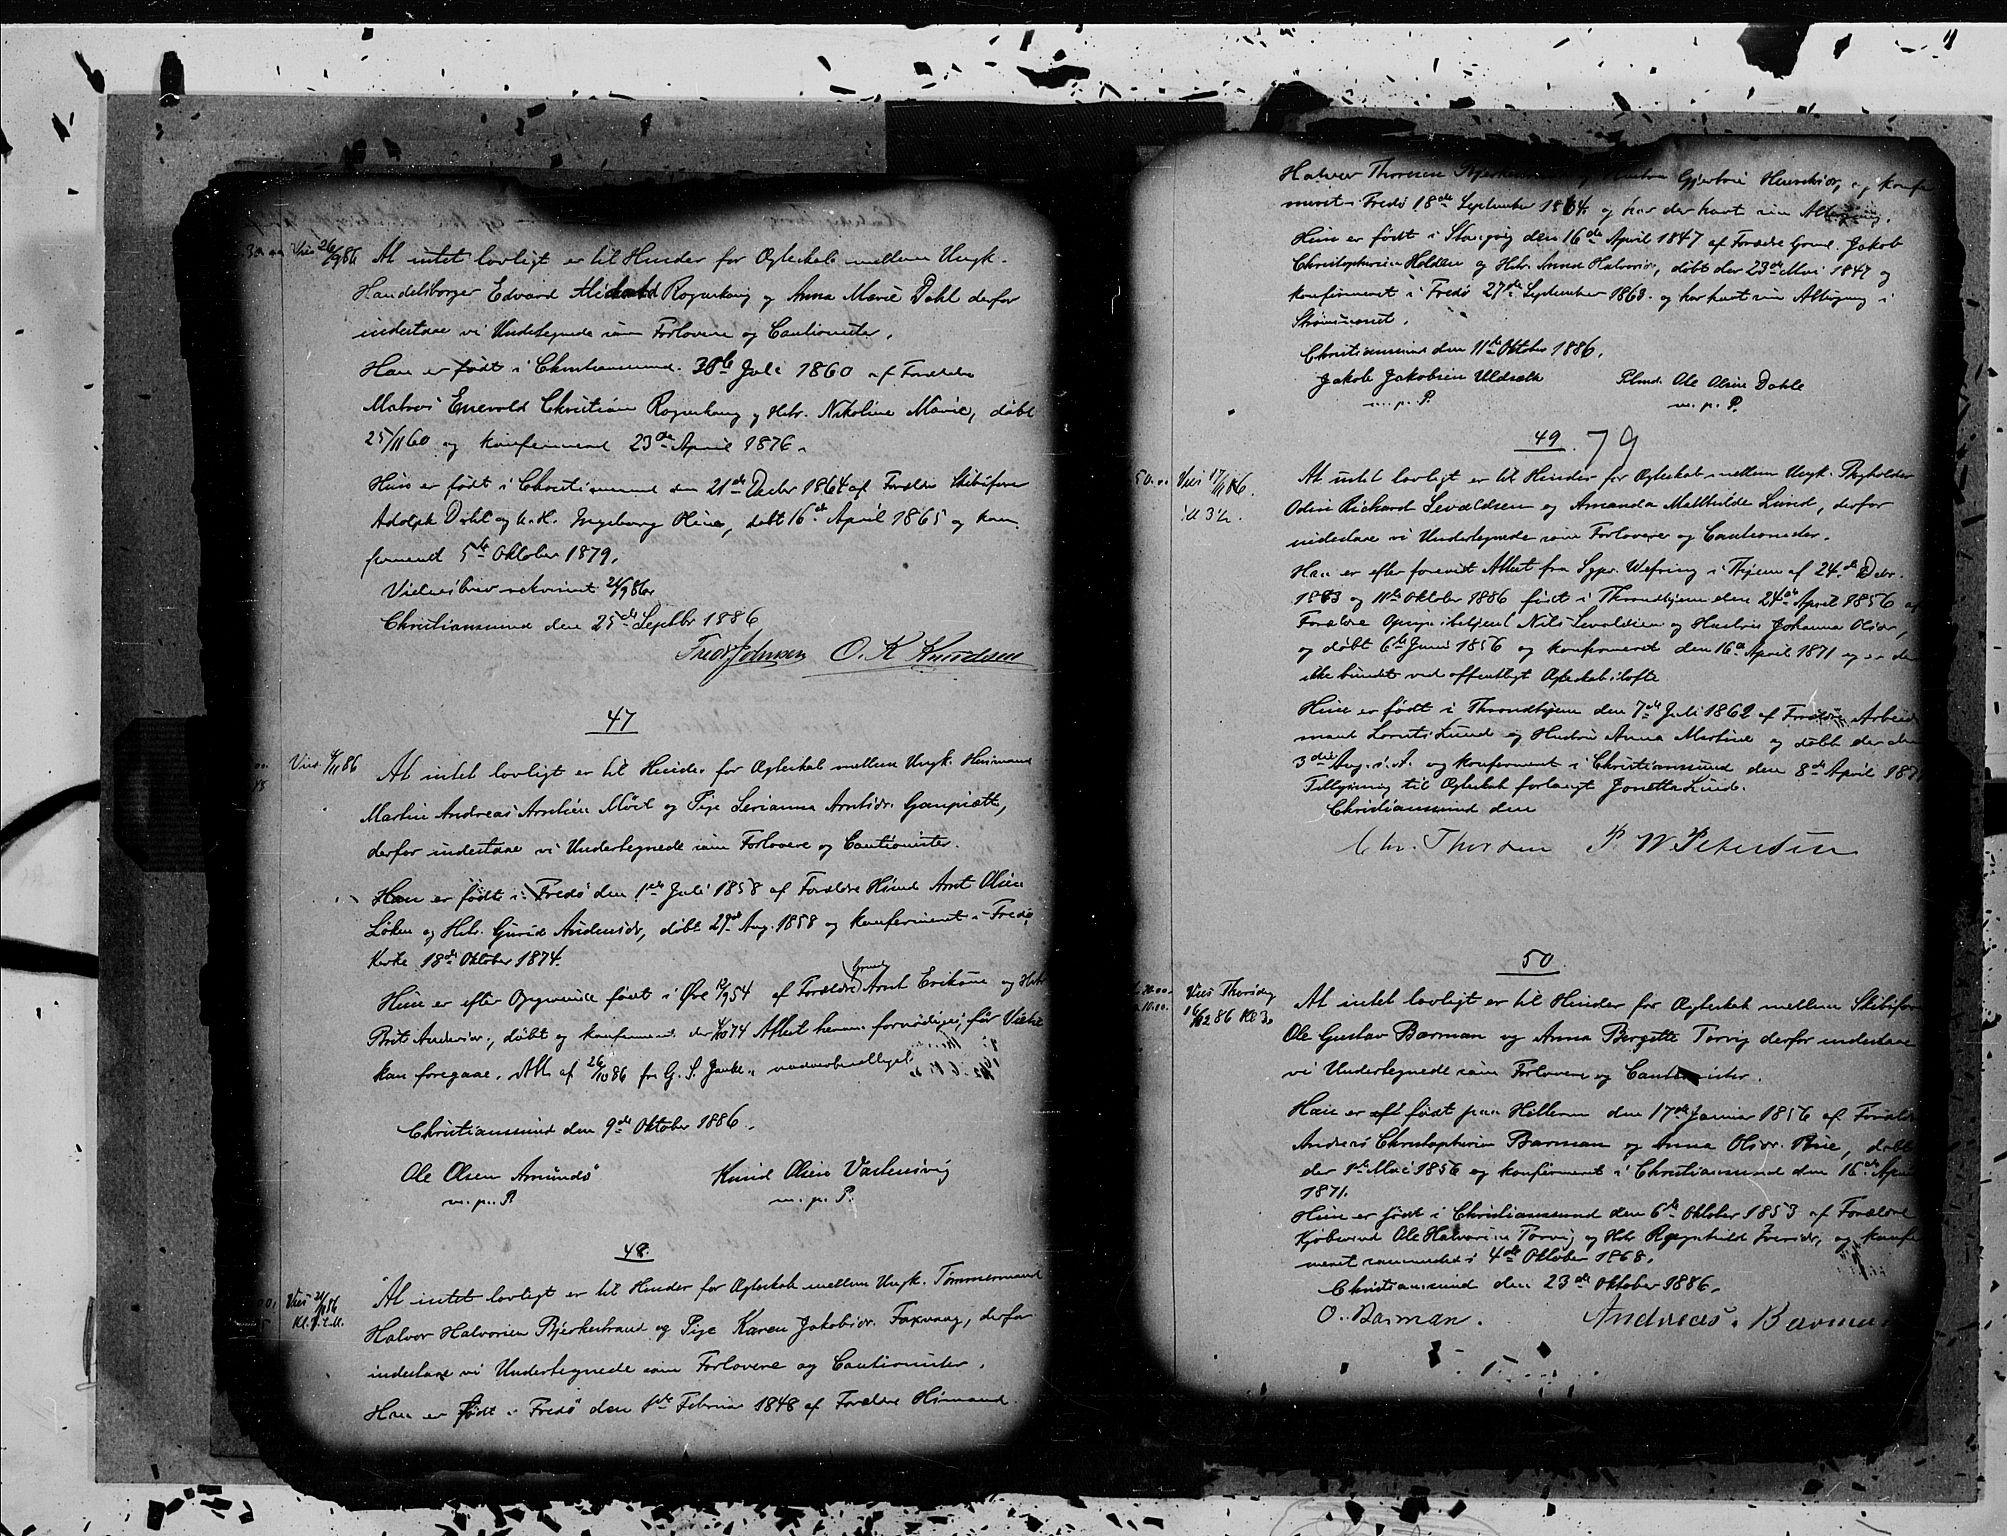 Viet 26/9 86
At intet lovligt er til Hinder for Ægteskab mellem Ungk.
Handelsborger Edvard Michael Rognskaug og Anna Marie Dahl derfor
indestaae vi Undertegnede som Forlovere og Cautionister.
Han er født i Christiansund 30te Juli 1860 af Forældre
Matros Enevold Christian Rognskaug og Hstr. Nikoline Marie, døbt
25/11 60 og konfirmeret 23de April 1876.
Hun er født i Christiansund den 21de Decbr 1864 af Forældre Skibsfører
Adolph Dahl og H. Ingeborg Oline, døbt 16de April 1865 og kon
firmeret 5te Oktober 1879.
Vielsesbrev rekvireret 24/9 86.
Christiansund den 25de Septbr 1886
Fredr Johnsen O. K Knudsen
47
Viet 4/11 86
At intet lovligt er til Hinder for Ægteskab mellem Ungk. Huusmand
Martin Andreas Arntsen Möst og Pige Serianna Arntsdr.
derfor indestaae vi Undertegnede som Forlovere og Cautionister.
Han er født i Fredø den 1ste Juli 1858 af Forældre Hmd Arnt Olsen
Løken og Hstr. Gurid Andersdr, døbt 29de Aug. 1858 og konfirmeret i Fredø
Kirke 18de Oktober 1874.
Hun er efter Opgivende født i Øre 12/9 54 af Forældre Gmd Arnt Eriksen og Hstr
Brit Andersdr., døbt og konfirmeret der 4/10 74 Attest herom fornødiges, før Vielse
kan foregaae. Att. af 26/10 86 fra G. S.
Christiansund den 9de Oktober 1886.
Ole Olsen Amundø Knud Olsen
m. p. P. m. p. P.
48.
Viet 21/10 86
At intet lovligt er til Hinder for Ægteskab mellem Ungk. Tømmermand
Halvor Halvorsen Bjerkestrand og Pige Karen Jakobsdr. Faxvaag, derfor
indestaae vi Undertegnede som Forlovere og Cautionister.
Han er født i Fredø den 1ste Februar 1848 af Forældre Hmand
Halvor Thoresen Bjerkestrand og Hustru Gjertrud Henriksdr, og konfir
meret i Fredø 18de September 1864 og har der havt sin Altergang.
Hun er født i Stangvig den 16de April 1847 af Forældre Grmd. Jakob
Christophersen Holden og Hstr. Anne Halvorsdr, døbt der 23de Mai 1847 og
konfirmeret i Fredø 27de September 1863 og har havt sin Altergang i
Christiansund den 11te Oktober 1886.
Jakob Jakobsen Uldsæth Plmd. Ole Olsen Dahle
m. p. P. m. p. P.
49. 79
Viet 17/11 86.
At intet lovligt er til Hinder for Ægteskab mellem Ungk.
Odin Richard Sevaldsen og Amanda Mathilde Lund, derfor
indestaae vi Undertegnede som Forlovere og Cautionister.
Han er efter forevist Attest fra Sgpr. Wefring i Thjem af 24de Decbr.
1883 og 11te Oktober 1886 født i Throndhjem den 24de April 1856 af
Forældre Nils Sevaldsen og Hustru Johanna Olsdr,
og døbt 6te Juni 1856 og konfirmeret den 16de April 1871 og er der
ikke bundet ved offentligt Ægteskabsløfte
Hun er født i Throndhjem den 7de Juli 1862 af Forældre Arbeids
mand Lornts Lund og Hustru Anna Martine og døbt der den
3die Aug. s. A. og konfirmeret i Christiansund den 8de April 187
Tillysning til Ægteskab forlangt Jonetta Lund.
Christiansund den
Chr. Thorsen P. W. Petersen
50
Viet Thorsdag
16/12 86 Kl 3
At intet lovligt er til Hinder for Ægteskab mellem Skibsfører
Ole Gustav Barman og Anna Bergitte Torvig derfor indestaae
vi Undertegnede som Forlovere og Cautionister.
Han er født paa Hitteren den 17de Januar 1856 af Forældre
Andreas Christophersen Barman og Anna Olsdr. Thue, døbt
der 1ste Mai 1856 og konfirmeret i Christiansund den 16de April
1871.
Hun er født i Christiansund den 6te Oktober 1853 af Forældre
Kjøbmand Ole Halvorsen Torvig og Hstr Ragnhild Iversdr, og konfir
meret sammesteds 4de Oktober 1868.
Christiansund den 23de Oktober 1886.
O. Barman. Andreas Barman